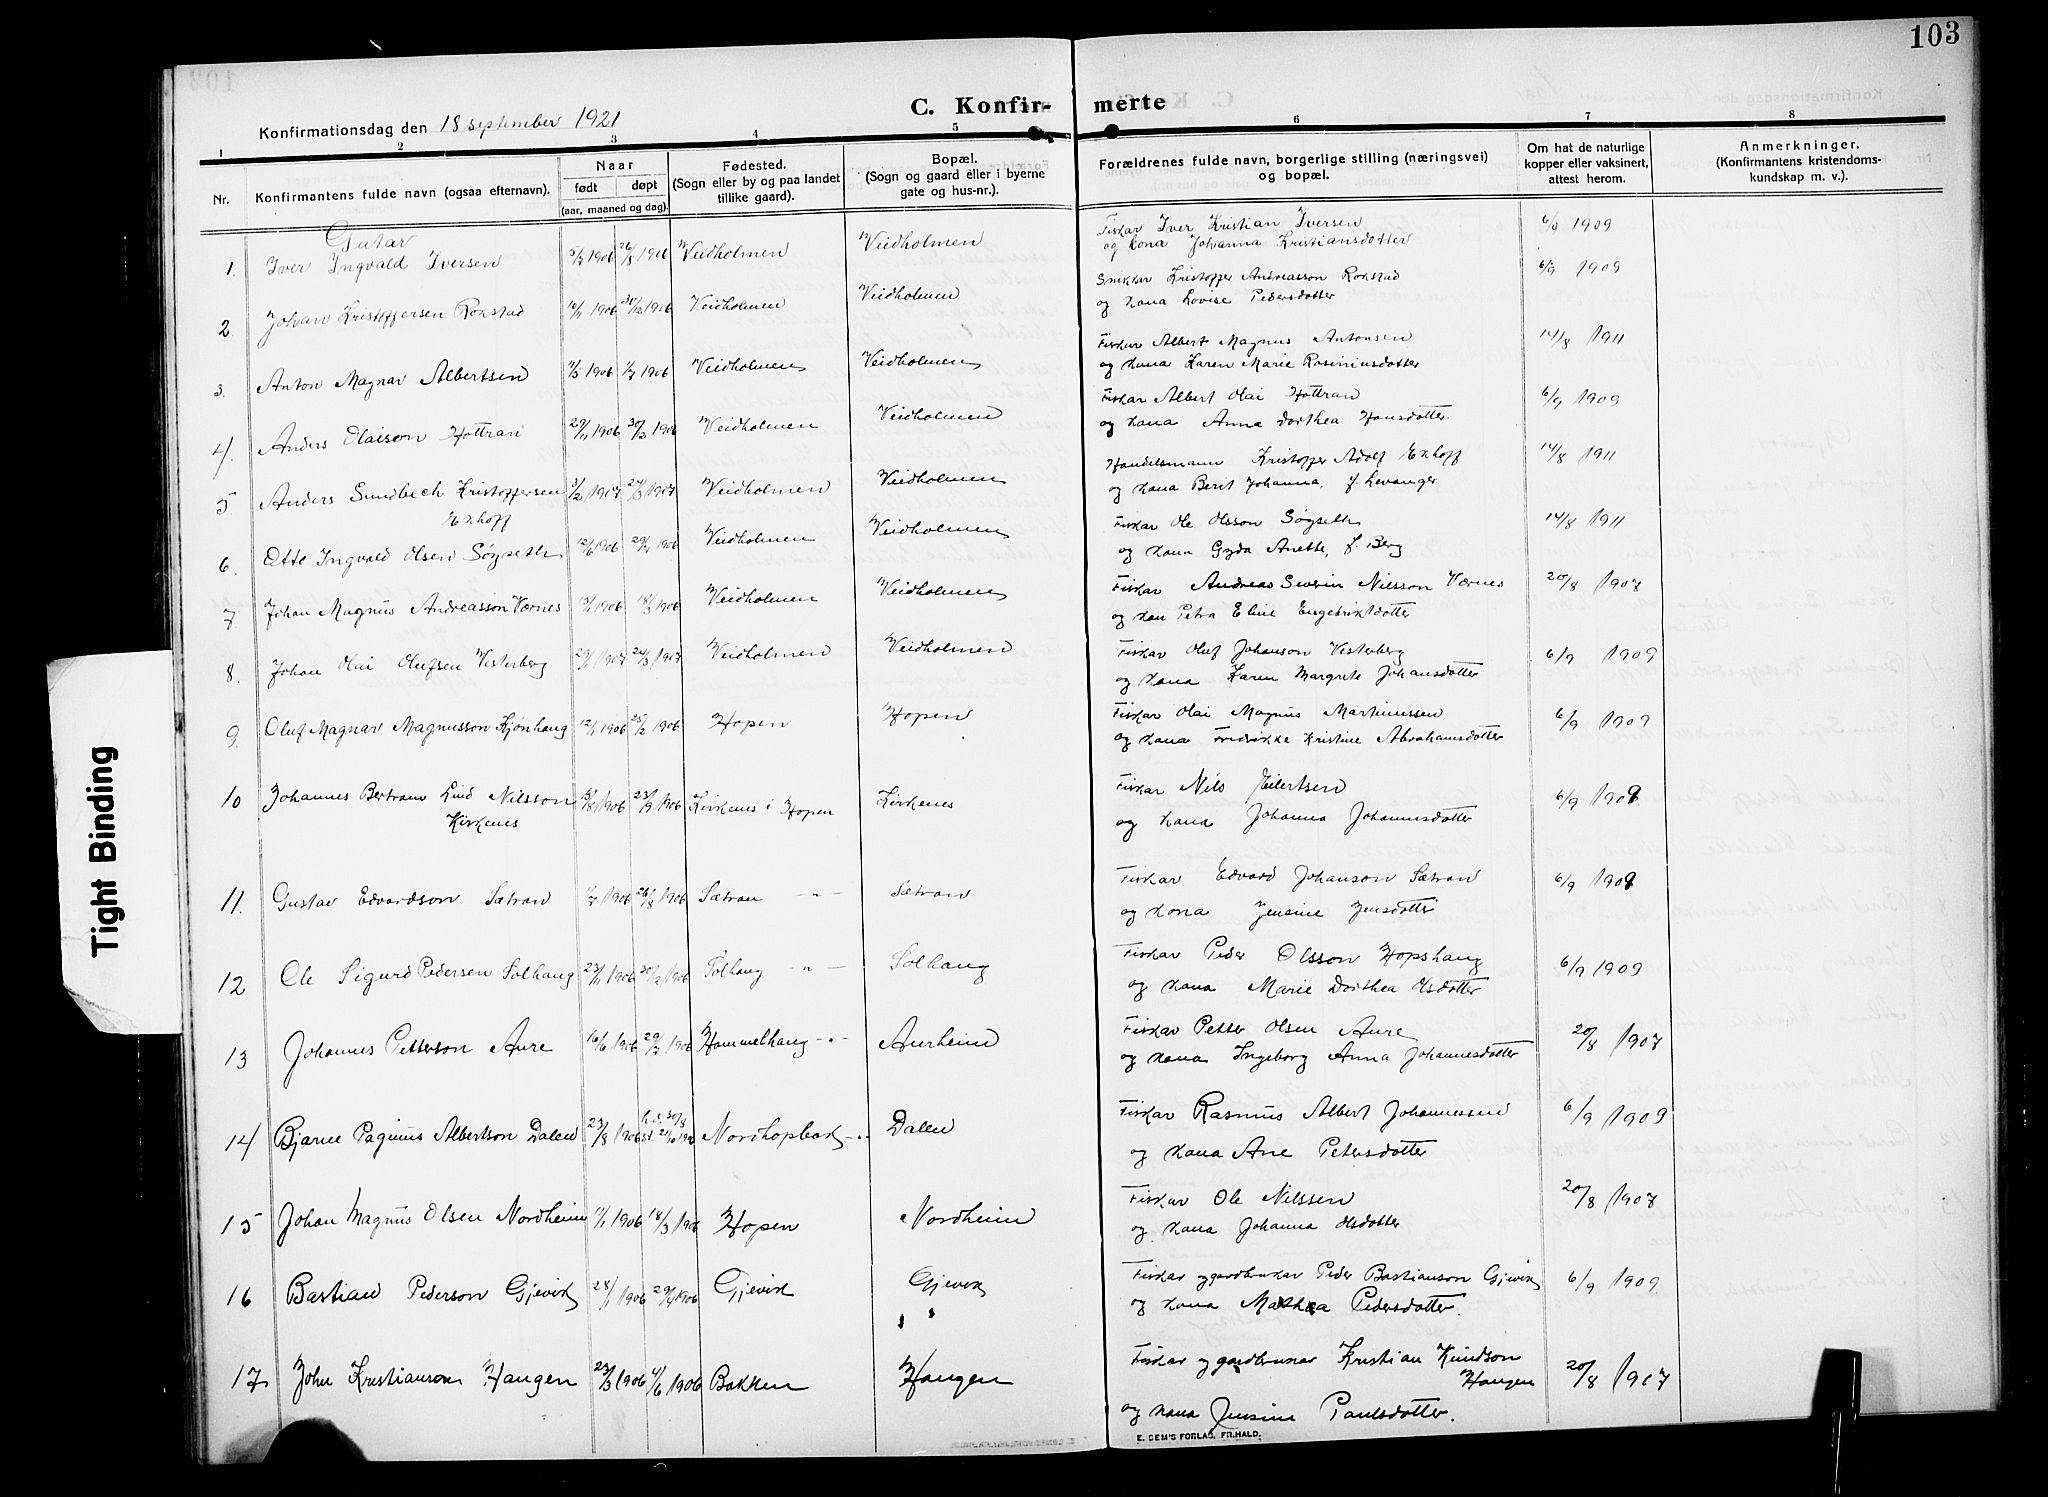 103
C. Konfir- merte
Konfirmationsdag den 18 september 1921
1 2 3 4 5 6 7 8
Nr.
Konfirmantens fulde navn (ogsaa efternavn).
Naar
født døpt
(aar, maaned og dag).
Fødested.
(Sogn eller by og paa landet
tillike gaard).
Bopæl.
(Sogn og gaard eller i byerne
gate og hus-nr.).
Forældrenes fulde navn, borgerlige stilling (næringsvei)
og bopæl.
Om hat de naturlige
kopper eller vaksinert,
attest herom.
Anmerkninger.
(Konfirmantens kristendoms-
kundskap m. v.).
Gutar
1. Iver Ingvald Iversen 1906 26/8 1906 Veidholmen Veidholmen Fiskar Iver Kristian Iversen 6/9 1909
og kona Johanna Kristiansdotter
2 Johan Kristoffersen Rokstad 1906 1906 Veidholmen Veidholmen Snikkar Kristoffer Andreasson Rokstad 6/9 1909
og kona Lovise Pedersdotter
3. Anton Magnar Albertsen 1906 1906 Veidholmen Veidholmen Fiskar Albert Magnus Antonsen 14/8 1911
og kona Karen Marie Rasmusdotter
4. Anders Olaison Hottran 29/11 1906 30/12 1906 Veidholmen Veidholmen Fiskar Albert Olai Hottran 6/9 1909
og kona Anna Dorthea Hansdotter.
5 Anders Sundbech Kristoffersen 3/2 1907 24/3 1907 Veidholmen Veidholmen Handelsmann Kristoffer Adolf Exhoff 14/8 1911
Exhoff og kona Berit Johanna, f. Levanger
6. Otto Ingvald Olsen Søgseth 12/6 1906 29/7 1906 Veidholmen Veidholmen Fiskar Ole Olsson Søgseth 14/8 1911
og kona Gyda Anette, f. Berg
7 Johan Magnus Andreasson Værnes 1906 18/3 1906 Veidholmen Veidholmen Fiskar Andreas Severin Nilsson Værnes 20/8 1907
og kon Petra Eline Engebriktdotter
8. Johan Olai Olufsen Vesterberg 29/1 1907 24/3 1907 Veidholmen Veidholmen Fiskar Oluf Johanson Vesterberg 6/9 1909
og kona Karen Margrete Johansdotter
9. Oluf Magnar Magnusson Kjønhaug 12/1 1906 25/2 1906 Hopen Hopen Fiskar Olai Magnus Martinussen 6/9 1909
og kona Fredrikke Kristine Abrahamsdotter
10 Johannes Bertram Lind Nilsson 1906 23/9 1906 Kirkenes i Hopen Kirkenes Fiskar Nils Eilertsen 6/9 1909
Kirkenes og kona Johanna Johannesdotter
11. Gustav Edvardson Sætran 1/7 1906 26/8 1906 Sætran -"- Sætran Fiskar Edvard Johanson Sætran 6/9 1909
og kona Jensine Jensdotter
12 Ole Sigurd Pedersen Solhaug 23/11 1906 30/12 1906 Solhaug -"- Solhaug Fiskar Peder Olsson Hopshaug 6/9 1909
og kona Marie Dorthea Olsdotter
13 Johannes Petterson Aure 16/6 1906 29/7 1906 Hammelhaug -"- Aurheim Fiskar Petter Olsen Aure 20/8 1907
og kona Ingeborg Anna Johannesdotter
14 Bjarne Pagnus Albertson Dalen 23/8 1906 h.d. 30/8 st. 21/10 Dalen Fiskar Rasmus Albert Johannessen 6/9 1909
og kona Ane Petersdotter
15 Johan Magnus Olsen Nordheim 11/1 1906 18/3 1906 Hopen Nordheim Fiskar Ole Nilssen 20/8 1907
og kona Johanna Olsdotter
16 Bastian Pederson Gjevik 28/1 1906 29/4 1906 Gjevik Gjevik Fiskar og gardbrukar Peder Bastianson Gjevik 6/9 1909.
og kona Mathea Pedersdotter.
17 John Kristianson Haugen 23/3 1906 4/6 1906 Bakken Haugen Fiskar og gardbrukar Kristian Knudson 20/8 1907
Haugen
og kona Jensine Paulsdotter.
E. SEM'S FORLAG, FR.HALD.
Tight Binding